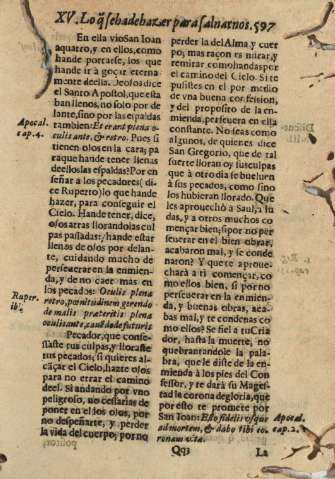 XV. Lo q̃ se ha de hazer para salvarnos. 597
En ella vio San Ioan
aquatro, y en ellos, como
hande portarse, los que
hande ir à goçar eterna-
mente della. Deosos dice
el Santo Apostol, que esta
ban llenos, no solo por de
lante, sino por las espaldas
tambien: Et erant plena o
culis ante, & retro. Pues si
tienen ojos en la cara; pa
ra que hande tener llenas
de ellos las espaldas? Por en
señar a los pecadores (di
ce Ruperto) lo que hande
hazer, para conseguir el
Cielo. Hande tener, dice,
ojos atras llorando las cul
pas passadas; hande estar
llenas de ojos por delan-
te, cuidando mucho de
perseuerar en la enmien-
da, y de no caer mas en
los pecados: Oculis plena
retro, pœnitudinem gerendo
de malis præteritis plena
oculis ante, cauta de futuris
Pecador, que confe-
saste tus culpas, y lloraste
tus pecados; si quieres al-
cãçar el Cielo, hazte ojos
para no errar el camino
del. Si andando por vno
peligroso, no cessarias de
poner en el los ojos, por
no despeñarte, y perder
la vida del cuerpo; por no
Apocal.
cap. 4.
Ruper.
ib.
perder la del Alma, y cuer
po; mas raçon es mirar, y
remirar como handas por
el camino del Cielo. Si te
pusistes en el por medio
de vna buena confesion,
y del proposito de la en-
mienda, perseuera en ella
constante. No seas como
algunos, de quienes dice
San Gregorio, que de tal
suerte lloran oy sus culpas
que à otro dia se buelven
à sus pecados, como sino
los hubieran llorado. Que
les aprouechò a Saul, a Iu
das, y a otros muchos co
mençar bien; si por no per
seuerar en el bien obrar,
acabaron mal, y se conde
naron? Y que te aproue-
charà a ti començar, co
mo ellos bien, si por no
perseuerar en la enmien-
da, y buenas obras, aca-
bas mal, y te condenas co
mo ellos? Se fiel a tu Cria
dor, hasta la muerte, no
quebrantandole la pala-
bra, que le diste de la en-
mienda à los pies del Con
fessor, y te darà su Mages-
tad la corona de gloria, que
por esto te promete por
San Ioan: Esto fidelis vsque
ad mortem, & dabo tibi co
ronam vitæ.
Apocal.
cap. 2.
Qq3 La